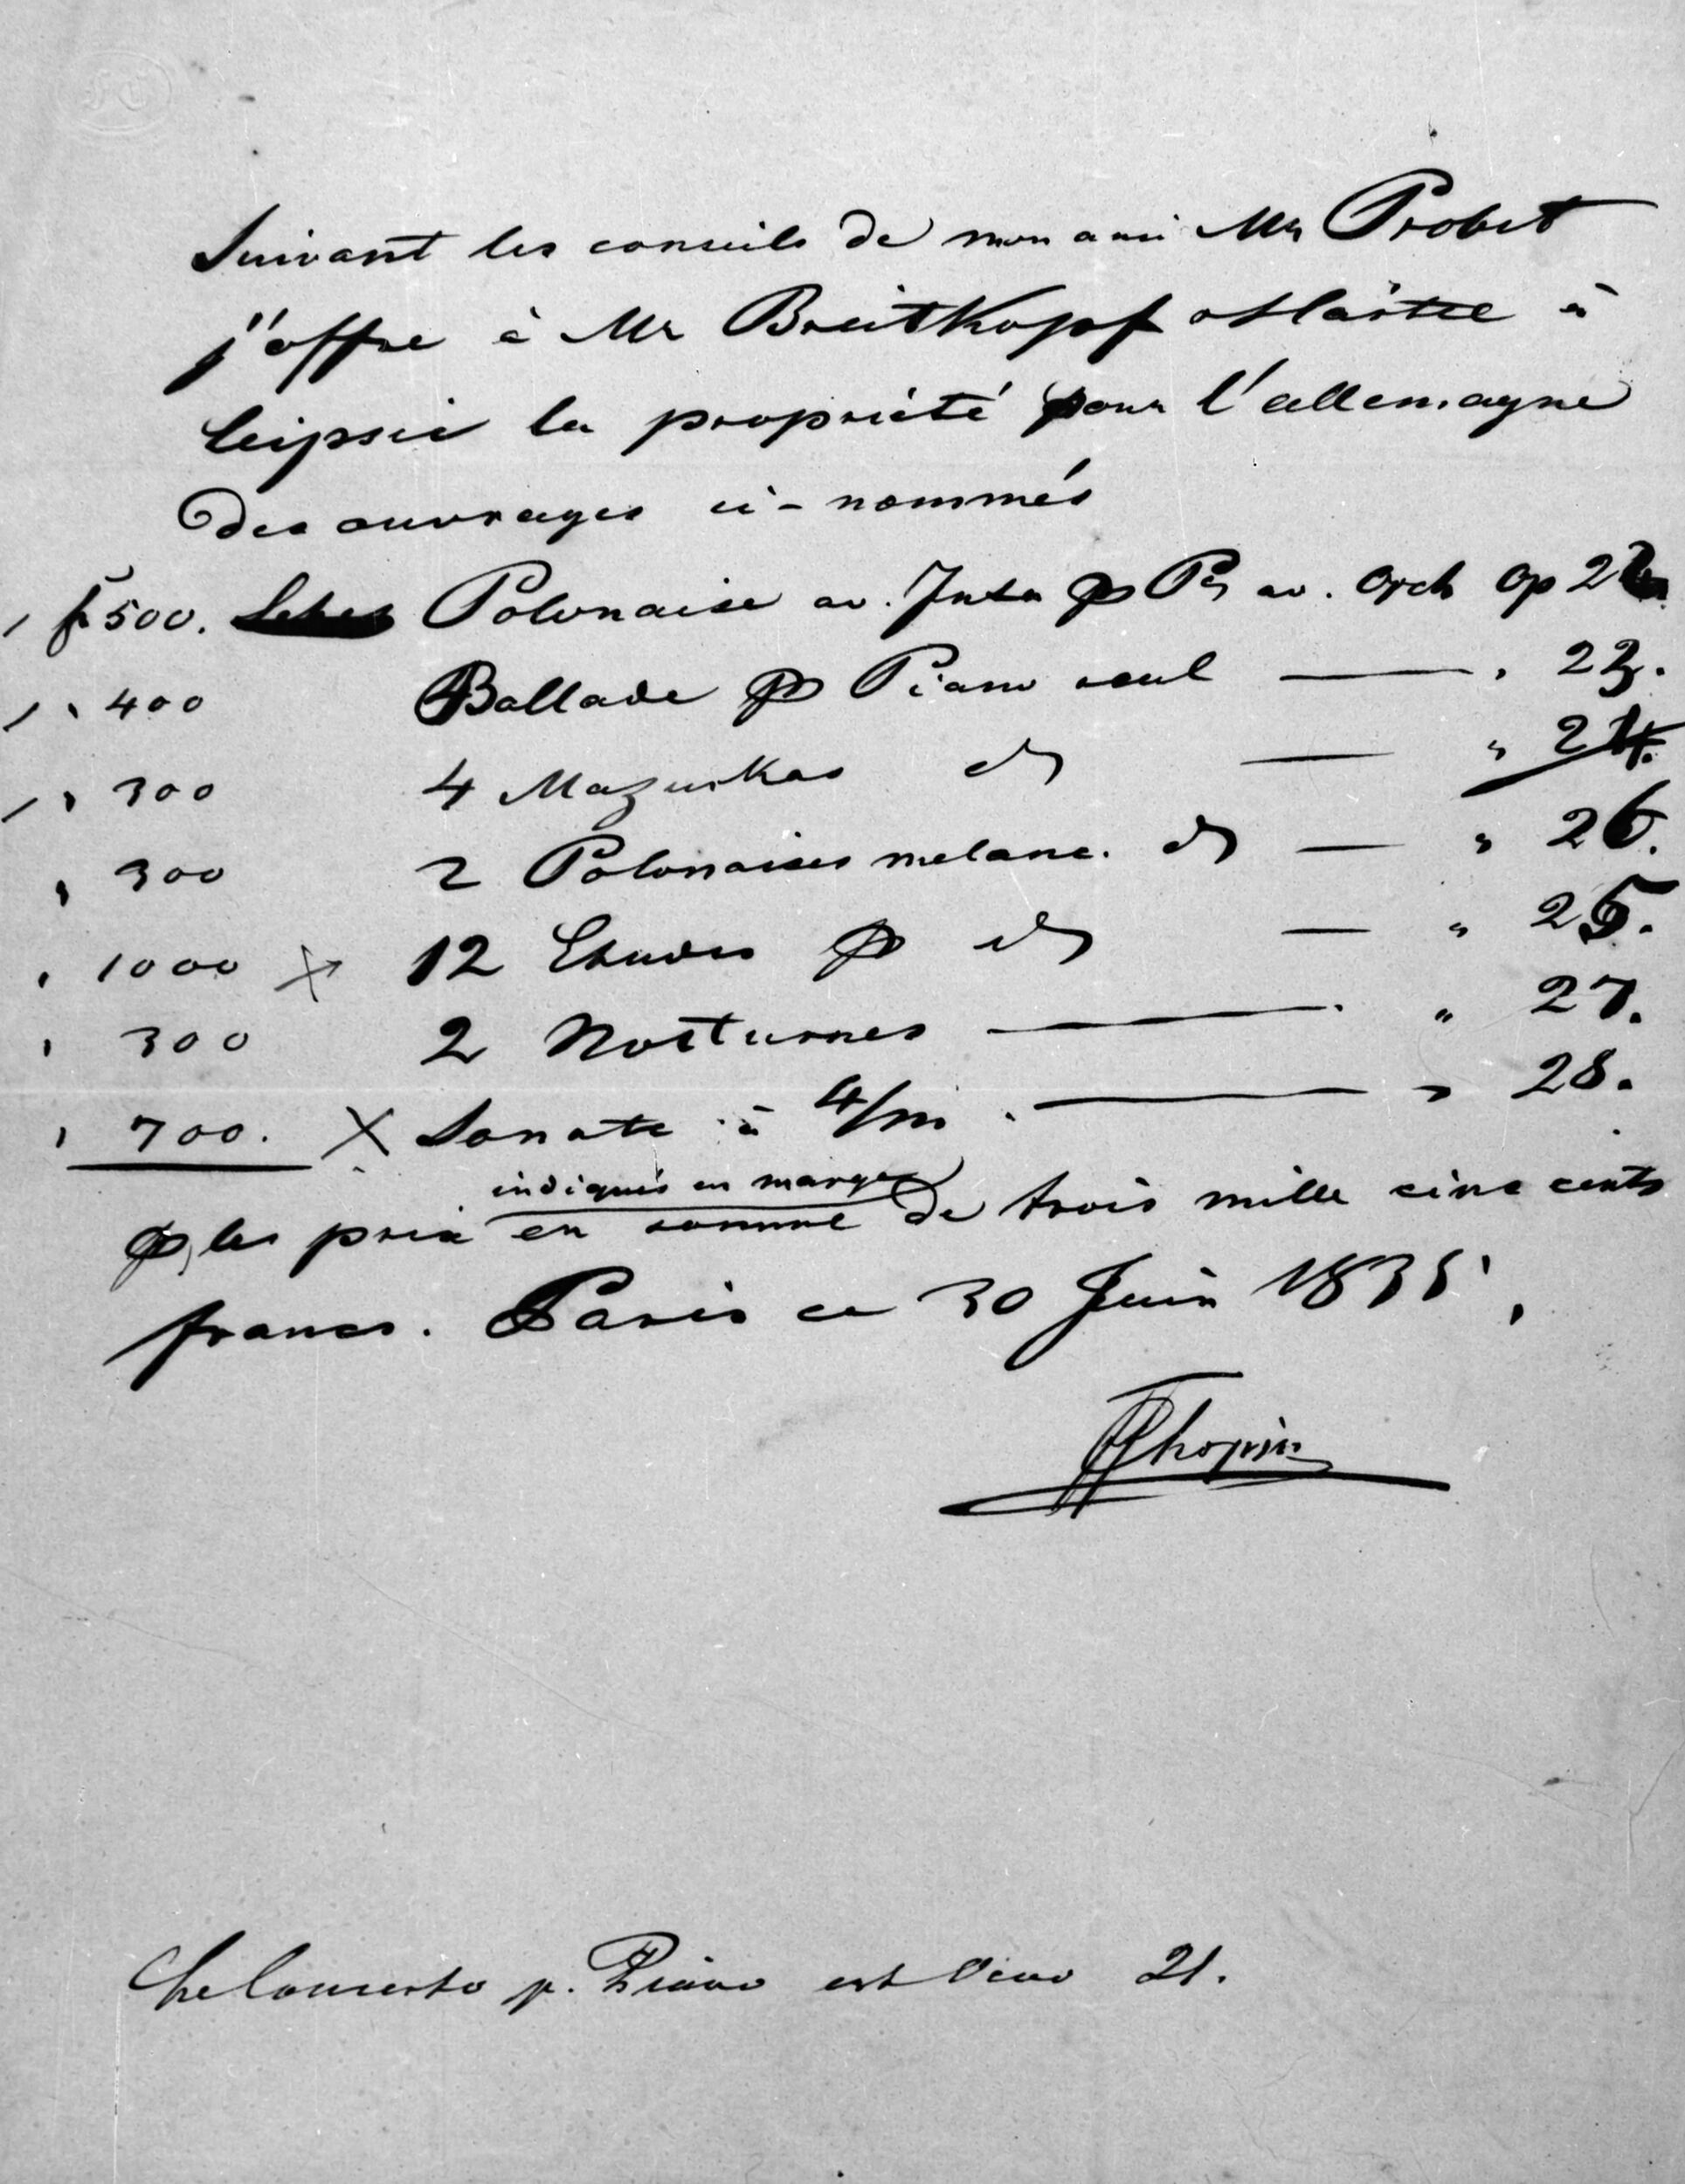 Suivant les conseils de mon ami Mr Probst
j'offre à Mr Breitkopf et Härtel à
Leipsic la propriété pour l'allemagne
des ouvrages ci-nommés
f 500. Polonaise av. Intr p Po av. Orch Op 22
" 400 Ballade p Piano seul — " 23.
" 300 4 Mazurkas do — " 24.
" 300 2 Polonaises melanc. do — " 26.
" 1000 X 12 Etudes p do — " 25.
" 300 2 Nocturnes — " 27.
" 700. X Sonate à 4/m. — " 28.
indiqués en marge
p les prix en somme de trois mille cinc cents
francs. Paris ce 30 Juin 1835.
FChopin
Le Concerto p. Piano est Oeuv 21.